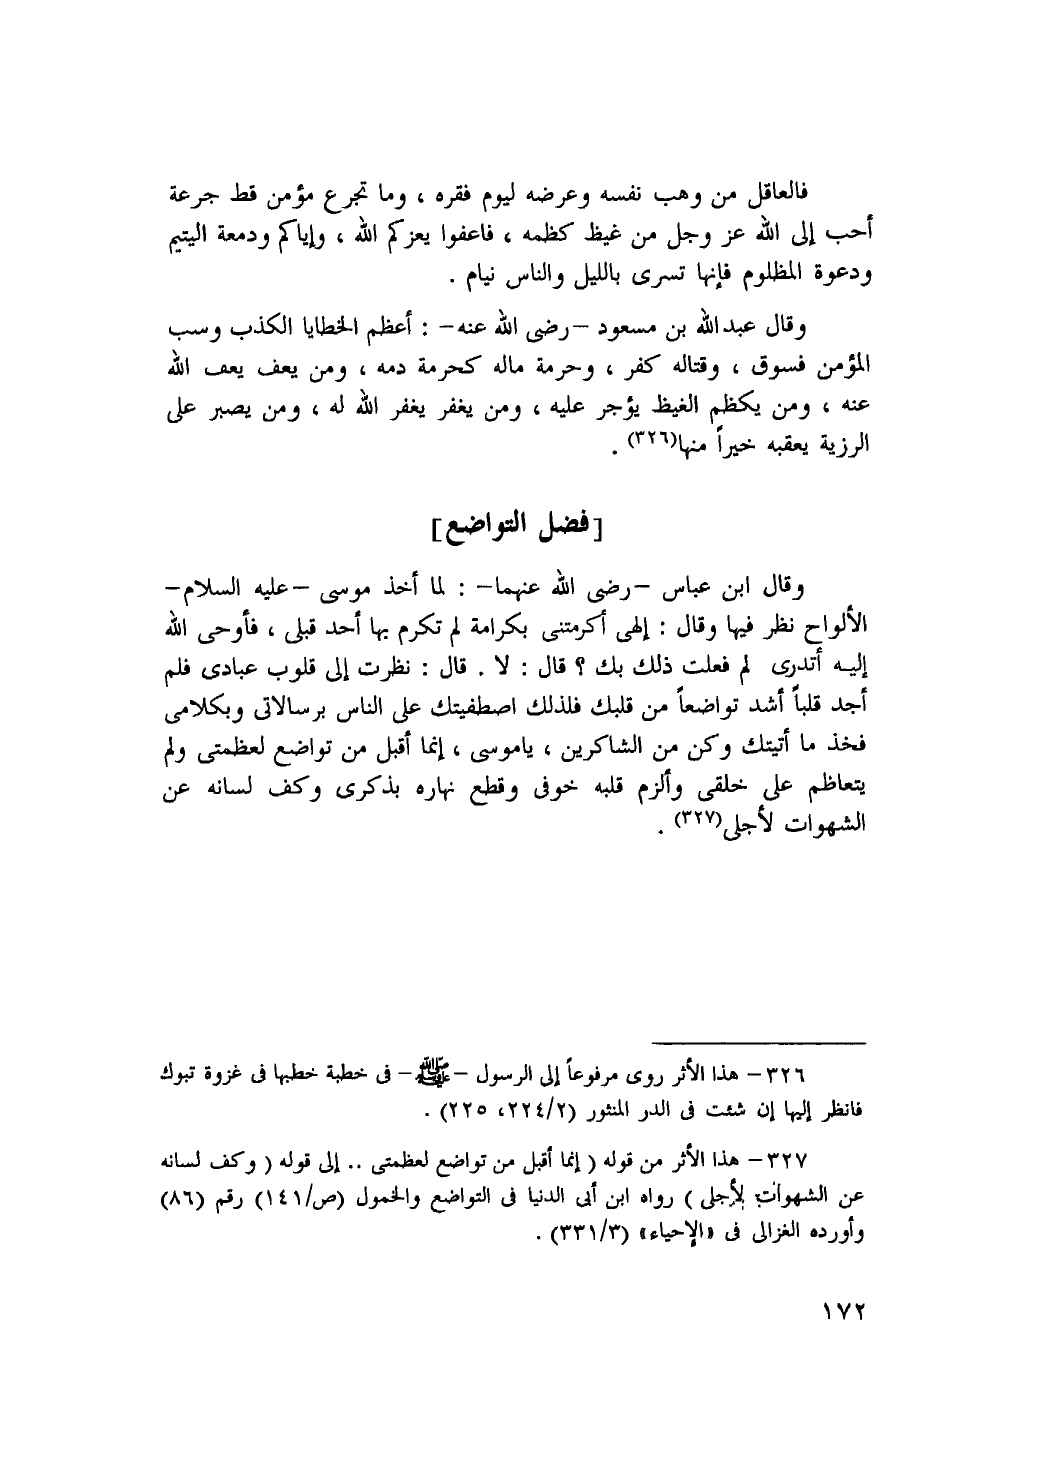 فالعاقل من وهب نفسه وعرضه ليوم فقره ، وما تجرع مؤمن قط جرعة
أحب إلى الله عز وجل من غيظ كظمه ، فاعفوا يعزكم الله ، وإياكم ودمعة اليتيم
ودعوة المظلوم فإنها تسرى بالليل والناس نيام .
وقال عبدالله بن مسعود –رضى الله عنه– : أعظم الخطايا الكذب وسب
المؤمن فسوق ، وقتاله كفر ، وحرمة ماله كحرمة دمه ، ومن يعف يعف الله
عنه ، ومن يكظم الغيظ يؤجر عليه ، ومن يغفر يغفر الله له ، ومن يصبر على
الرزية يعقبه خيراً منها(٣٢٦) .
[فضل التواضع]
وقال ابن عباس –رضى الله عنهما– : لما أخذ موسى –عليه السلام–
الألواح نظر فيها وقال : إلهى أكرمتنى بكرامة لم تكرم بها أحد قبلى ، فأوحى الله
إليه أتدرى لم فعلت ذلك بك ؟ قال : لا . قال : نظرت إلى قلوب عبادى فلم
أجد قلباً أشد تواضعاً من قلبك فلذلك اصطفيتك على الناس برسالاتى وبكلامى
فخذ ما أتيتك وكن من الشاكرين ، ياموسى ، إنما أقبل من تواضع لعظمتى ولم
يتعاظم على خلقى وألزم قلبه خوفى وقطع نهاره بذكرى وكف لسانه عن
الشهوات لأجلى(٣٢٧) .
٣٢٦– هذا الأثر روى مرفوعاً إلى الرسول –ﷺ– فى خطبة خطبها فى غزوة تبوك
فانظر إليها إن شئت فى الدر المنثور (٢٢٤/٢، ٢٢٥) .
٣٢٧– هذا الأثر من قوله ( إنما أقبل من تواضع لعظمتى .. إلى قوله ( وكف لسانه
عن الشهوات لأجلى ) رواه ابن أبى الدنيا فى التواضع والخمول (ص/١٤١) رقم (٨٦)
وأورده الغزالى فى «الإحياء» (٣٣١/٣) .
١٧٢